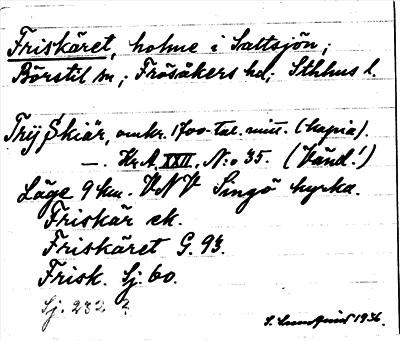 Friskäret, holme i Saltsjön;
Börstil sn; Frösåkers hd; Sthlms l.
Trijskiär, omkr. 1700-tal. mitt. (kopia).
—. Kr. A. XXII. N:o 35. (Vänd!)
Läge 9 km. VNV Singö kyrka.
Friskär ek.
Friskäret G. 93.
Frisk. Sj. 60.
Sj. 232 ?
S. Lundqvist 1936.